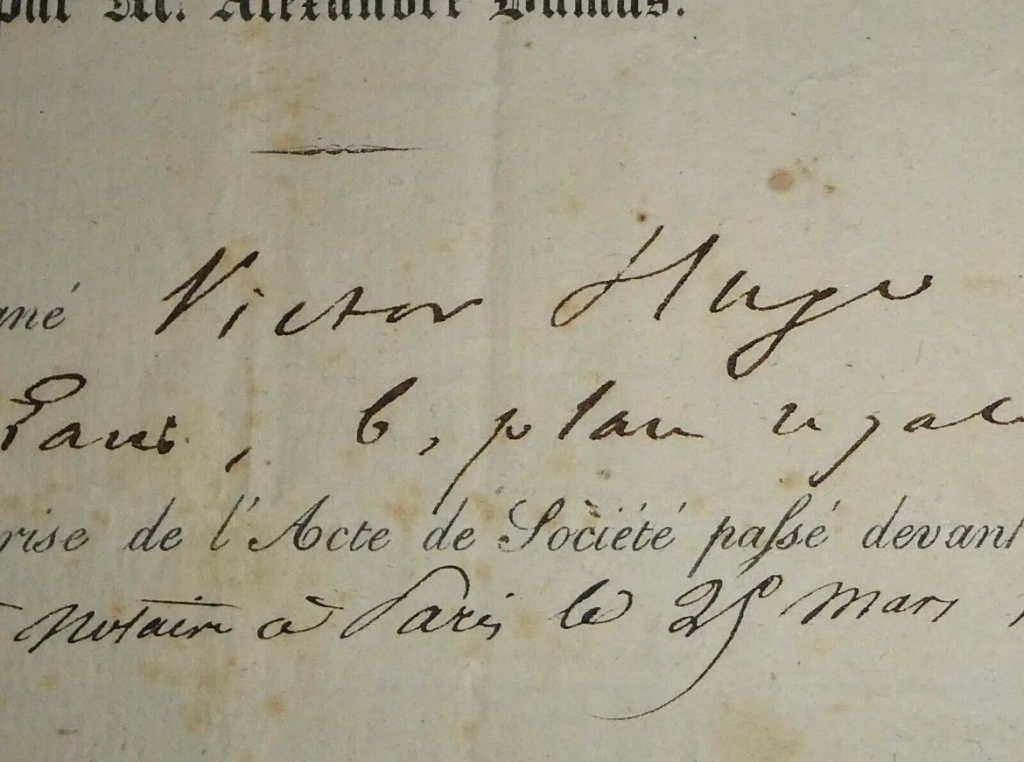 par M. Alexandre Dumas.
gné Victor Hugo
Paris, 6, place royale
rise de l'Acte de Société passé devant
notaire à Paris le 25 Mars